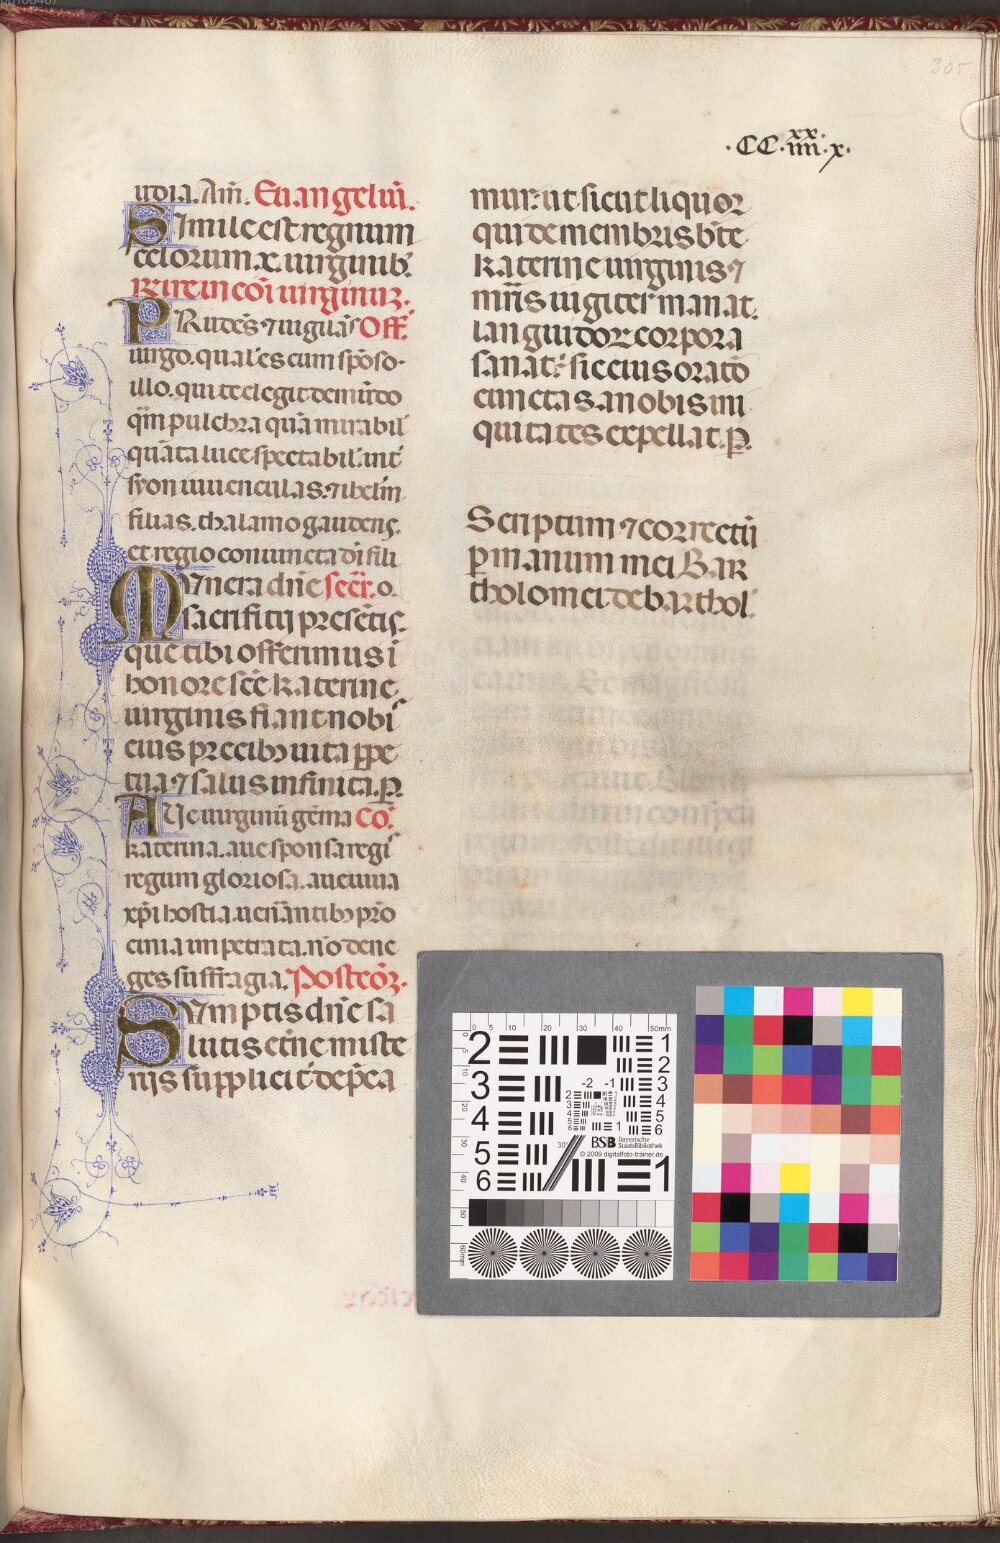 305
·CC·xx/iiii·x·
udia. Am̄. Euangeliū.
Simile est regnum
celorum .x. uirginib;
Rire in cōi uirginuȝ.
PRudēs ⁊ uigilās Off̄
uirgo. qualˀ es cum spōso·
illo. qui te elegit de mūdo
q̄m pulchra quā mirabil̓
quāta luce spectabil̓. int̓
syon iuuenculas. ⁊ ibelm̄
filias. thalamo gaudens.
et regio coniuncta di fili
MUnera dn̄e secr̄. o.
sacrifitij presētis.
que tibi offerimus ī
honore scē katerine
uirginis fiant nobi
eius precibꝫ uita ꝑpe
tua ⁊ salus infinita. P̄.
AUe uirginū gēma Cō.
katerina. aue sponsa regi
regum gloriosa. aue uiua
xp̄i hostia. uen̄antibꝫ pro
cinia impetrata. nō dene
ges suffragia. Postcōȝ.
SUmptis dn̄e sa
lutis et̄ne miste
rijs supplicit̄ dep̄ca
mur: ut sicut liquor
qui de membris bt̄e
katerine uirginis ⁊
mr̄is iugiter manat.
languidoꝝ corpora
sanat: sic eius orato
cunctas a nobis ini
quitates expellat. P̄.
Scriptum ⁊ correctū
ꝑ manum mei Bar
tholomei de barthol̓.
0 5 10 20 30 40 50mm
2 1
2
3 3
4 4
5 5
6 6
-2 -1
BSB Bayerische StaatsBibliothek
© 2009 digitalfoto-trainer.de
30°
1